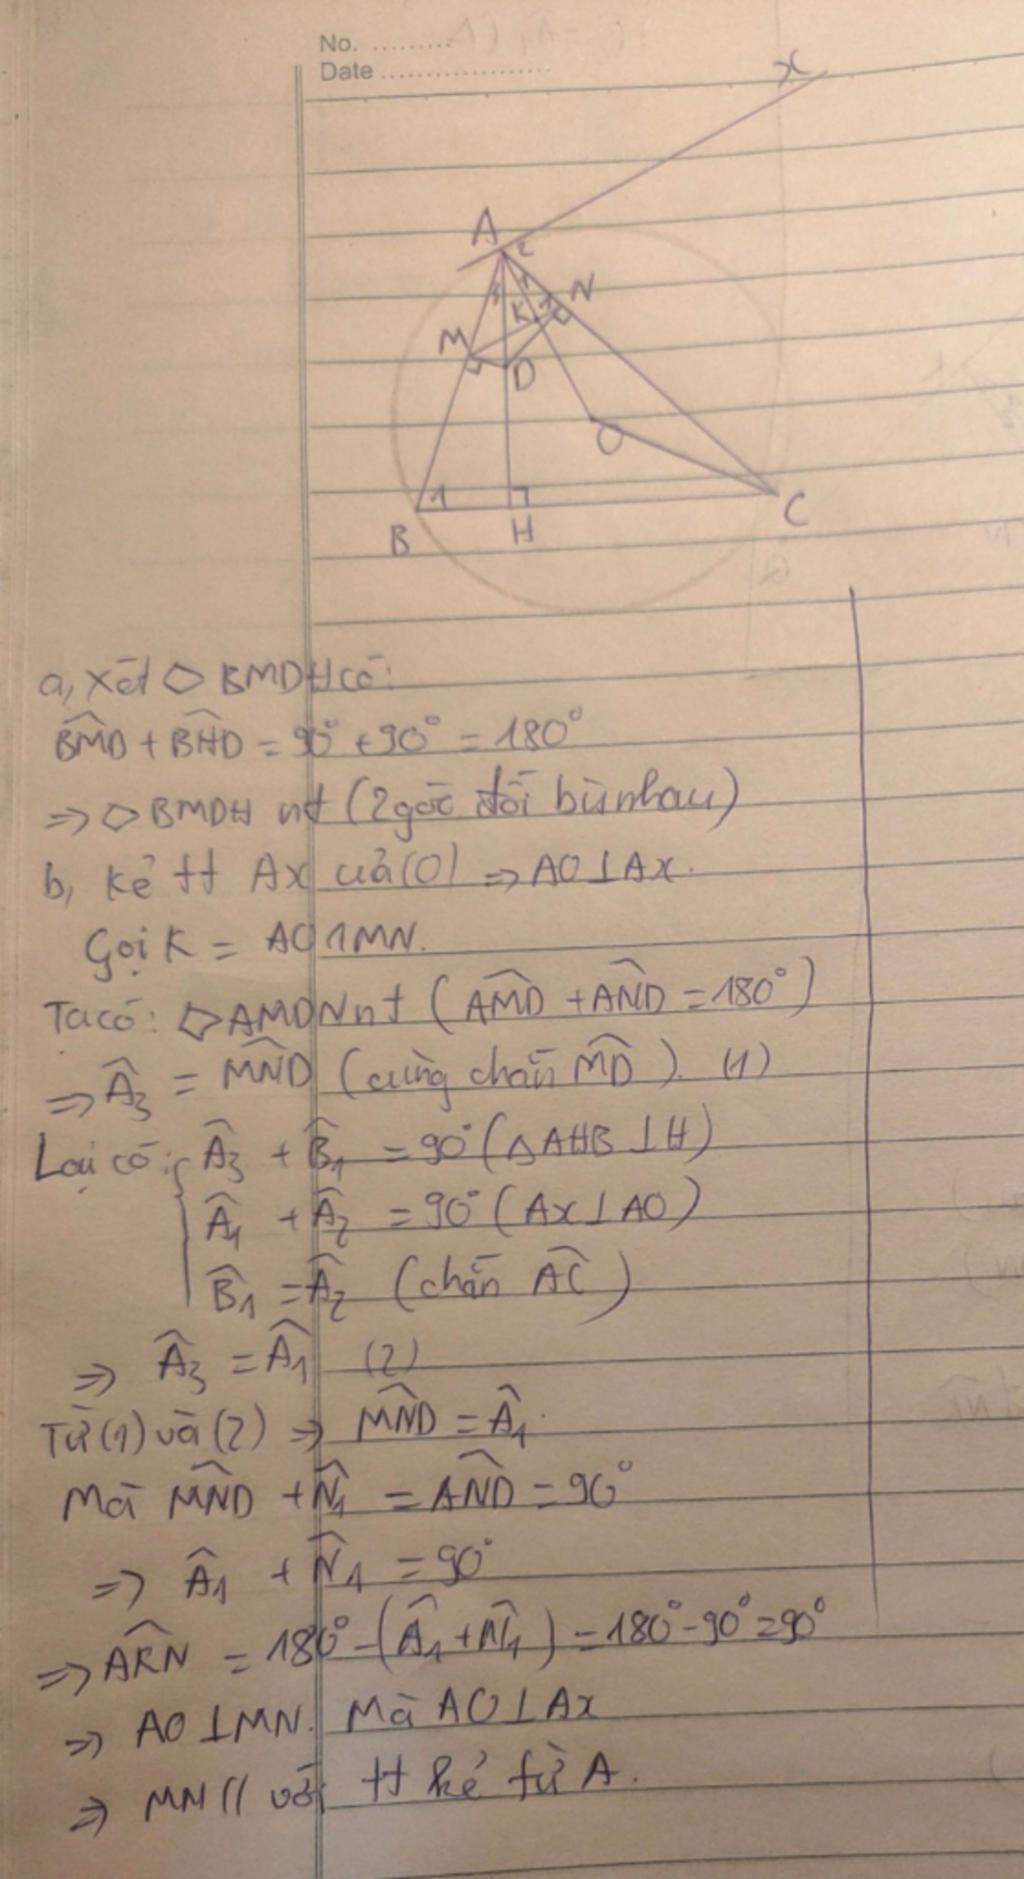 No. .........
Date ...................
x
A
2
1
3
K
1
N
M
D
O
1
B
H
C
a, Xét ◇ BMDH có:
B̂MD + B̂HD = 90° + 90° = 180°
=> ◇ BMDH nt (2 góc đối bù nhau)
b, Kẻ tt Ax của (O) => AO ⊥ Ax.
Gọi K = AO ∩ MN.
Ta có: ◇ AMDN nt (ÂMD + ÂND = 180°)
=> Â₃ = M̂ND (cùng chắn M̂D). (1)
Lại có: { Â₃ + B̂₁ = 90° (Δ AHB ⊥ H)
Â₁ + Â₂ = 90° (Ax ⊥ AO)
B̂₁ = Â₂ (chắn ÂC)
=> Â₃ = Â₁ (2)
Từ (1) và (2) => M̂ND = Â₁.
Mà M̂ND + N̂₁ = ÂND = 90°
=> Â₁ + N̂₁ = 90°
=> ÂKN = 180° - (Â₁ + N̂₁) = 180° - 90° = 90°
=> AO ⊥ MN. Mà AO ⊥ Ax
=> MN // với tt kẻ từ A.